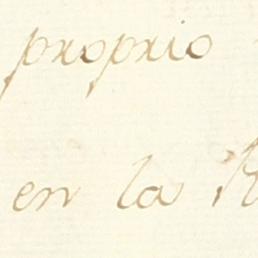 proprio
en la